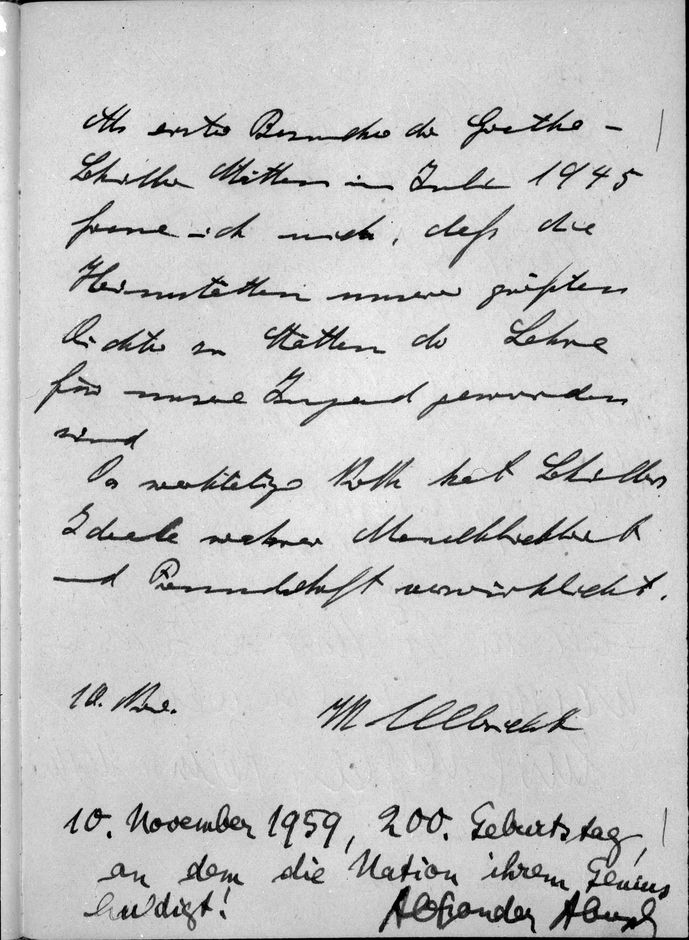 Als erster Besucher der Goethe-
Schiller Stätten im Juli 1945
freue ich mich, daß die
Heimstätten unserer größten
Dichter zu Stätten der Lehre
für unsere Jugend geworden
sind
Das werktätige Volk hat Schillers
Ideale wahrer Menschlichkeit
und Freundschaft verwirklicht.
10. Nov. W Ulbricht
10. November 1959, 200. Geburtstag,
an dem die Nation ihrem Genius
huldigt! Alexander Abusch